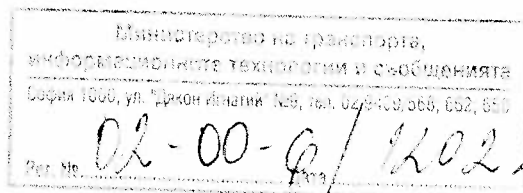 Министерство на транспорта,
информационните технологии и съобщенията
София 1000, ул. "Дякон Игнатий" №9, тел. 02/9409 566, 652, 650
Рег. №. 02-00-